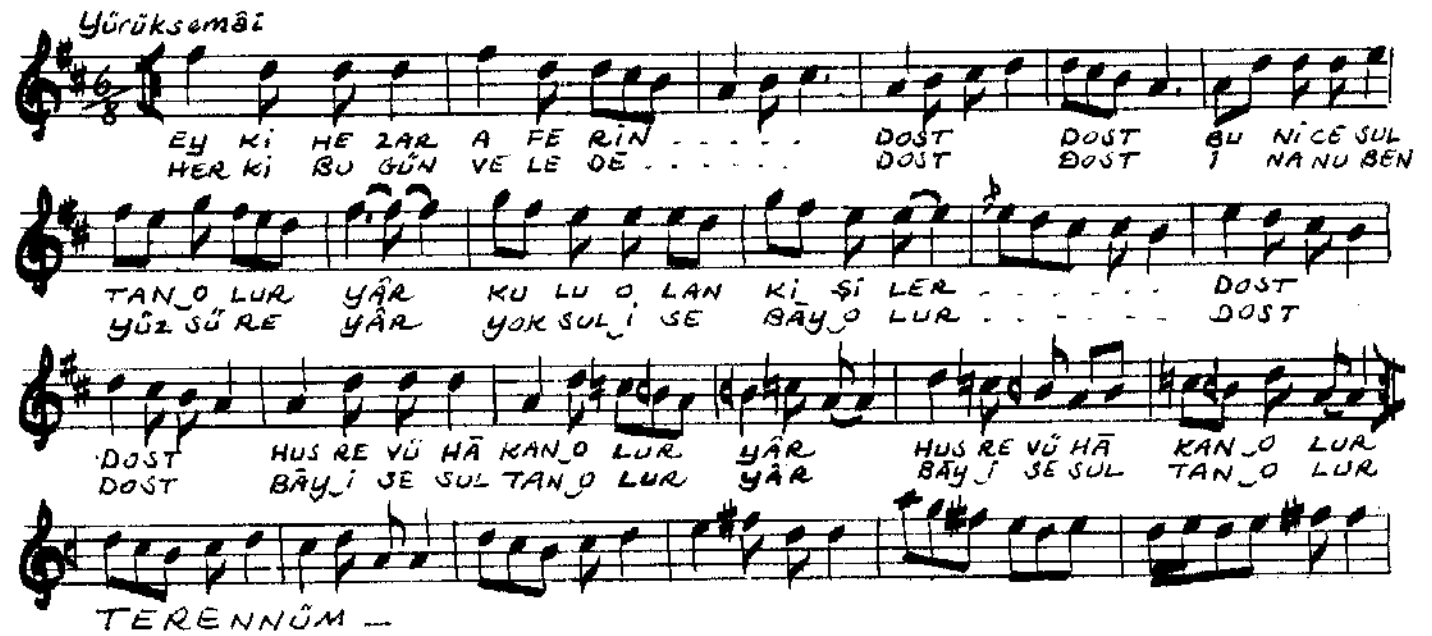 Yürüksemâi
6/8
EY Kİ HE ZAR A FE RİN . . . . . . DOST DOST BU NİCE SUL
HER Kİ BU GÜN VE LE DĒ . . . . . . DOST DOST İ NANU BEN
TAN_O LUR YÂR KU LU O LAN Kİ Şİ LER . . . . . . DOST
YÜZ SÜ RE YÂR YOKSUL_İ SE BĀY_O LUR . . . . . . DOST
DOST HUS RE VÜ HĀ KAN_O LUR YÂR HUS RE VÜ HĀ KAN_O LUR
DOST BĀY_İ SE SUL TAN_O LUR YÂR BĀY_İ SE SUL TAN_O LUR
TERENNÜM _